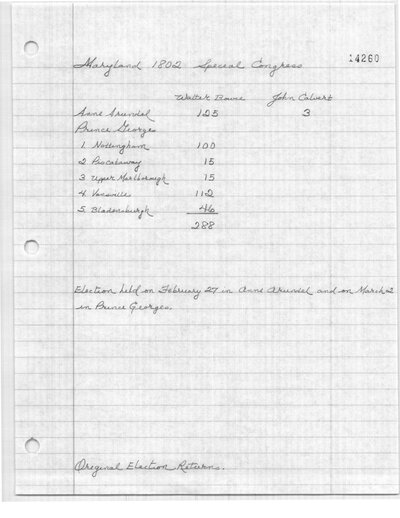 Maryland 1802 Special Congress 14260
Walter Bowie John Calvert
Anne Arundel 125 3
Prince Georges
1. Nottingham 100
2. Piscataway 15
3 Upper Marlborough 15
4. Vansville 112
5. Bladensburgh 46
288
Election held on February 27 in Anne Arundel and on March 2
in Prince Georges.
Original Election Returns.